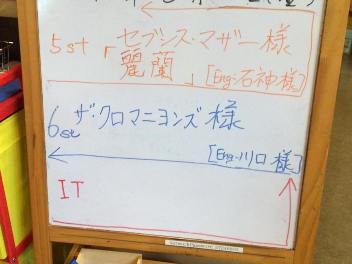 5st「セブンス・マザー様
麗蘭 」[Eng.石神様]
6st ザ・クロマニヨンズ 様
[Eng.川口 様]
IT